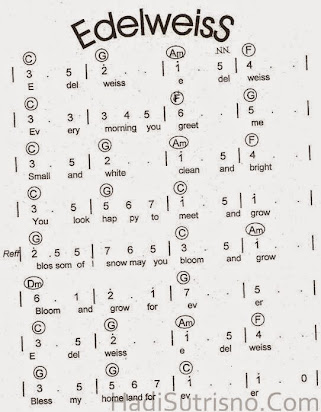 Edelweiss
C G Am NN. F
| 3 . 5 | 2̇ . . | i . 5 | 4 . . |
E del weiss e del weiss
C F G
| 3 . 3 | 3 4 5 | 6 . . | 5 . . |
Ev ery morning you greet me
C G Am F
| 3 . 5 | 2̇ . . | i . 5 | 4 . . |
Small and white clean and bright
C G C
| 3 . 5 | 5 6 7 | i . . | i . 5 |
You look hap py to meet and grow
G C Am
Reff | 2̇ . 5 5 | 7 6 5 | 3 . 5 | i . . |
blos som of snow may you bloom and grow
Dm G
| 6 . i | 2̇ . i | 7 . . | 5 . . |
Bloom and grow for ev er
C G Am F
| 3 . 5 | 2̇ . . | i . 5 | 4 . . |
E del weiss e del weiss
C G C
| 3 . 5 | 5 6 7 | i . . | i . 0 |
Bless my home land for ev er
HadiSutrisno.Com